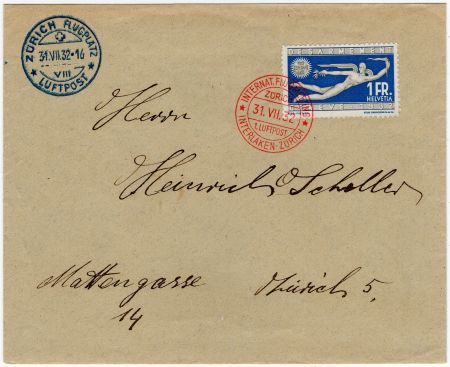 ZÜRICH FLUGPLATZ
31.VII.32-16
VIII
LUFTPOST
DESARMEMENT
1 FR.
HELVETIA
INTERNAT.
ZÜRICH
31. VII. 32
1. LUFTPOST
INTERLAKEN-ZÜRICH
Herrn
Heinrich Scheller
Mattengasse Zürich 5.
14